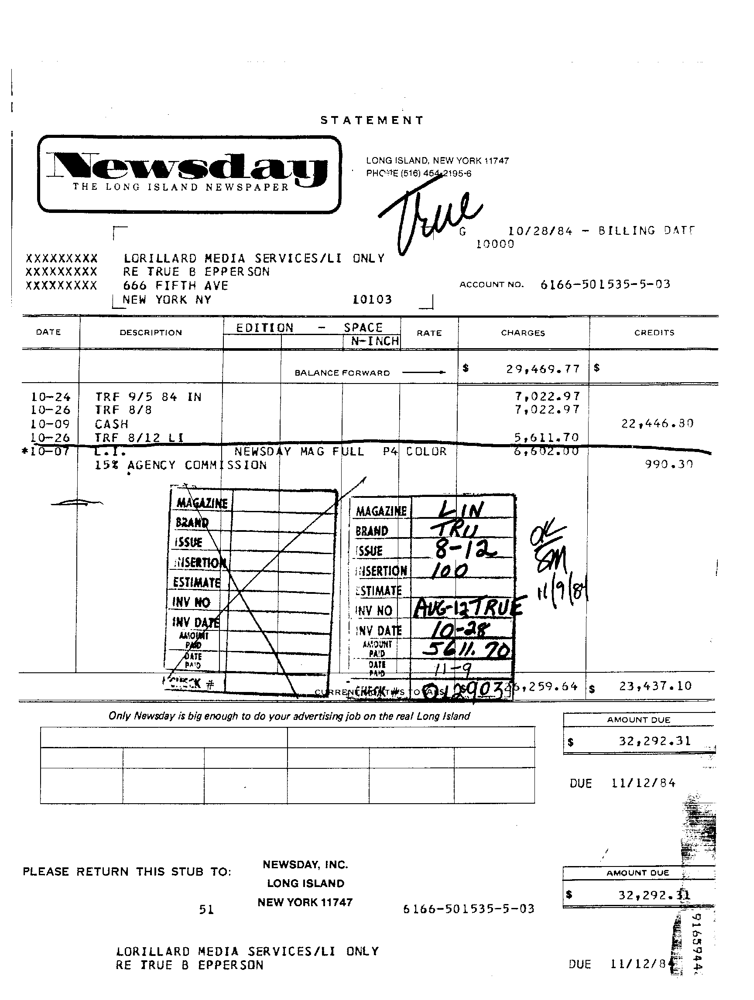 STATEMENT
Newsday
THE LONG ISLAND NEWSPAPER
LONG ISLAND, NEW YORK 11747
PHONE (516) 454-2195-6
True
G 10/28/84 - BILLING DATE
10000
XXXXXXXXX LORILLARD MEDIA SERVICES/LI ONLY
XXXXXXXXX RE TRUE B EPPERSON
XXXXXXXXX 666 FIFTH AVE
NEW YORK NY 10103
ACCOUNT NO. 6166-501535-5-03
DATE DESCRIPTION EDITION - SPACE RATE CHARGES CREDITS
N-INCH
BALANCE FORWARD $ 29,469.77 $
10-24 TRF 9/5 84 IN 7,022.97
10-26 TRF 8/8 7,022.97
10-09 CASH 22,446.80
10-26 TRF 8/12 LI 5,611.70
*10-07 L.I. NEWSDAY MAG FULL P4 COLOR 6,602.00
15% AGENCY COMMISSION 990.30
MAGAZINE
BRAND
ISSUE
INSERTION
ESTIMATE
INV NO
INV DATE
AMOUNT PAID
DATE PAID
CHECK #
MAGAZINE LIN
BRAND TRU
ISSUE 8-12
INSERTION 100
ESTIMATE
INV NO AUG-12 TRUE
INV DATE 10-28
AMOUNT PAID 5611.70
DATE PAID 11-9
CHECK #s 012903
OK
SM
11/9/84
46,259.64 $ 23,437.10
Only Newsday is big enough to do your advertising job on the real Long Island
AMOUNT DUE
$ 32,292.31
DUE 11/12/84
PLEASE RETURN THIS STUB TO: NEWSDAY, INC.
LONG ISLAND
NEW YORK 11747
51
6166-501535-5-03
AMOUNT DUE
$ 32,292.31
LORILLARD MEDIA SERVICES/LI ONLY
RE TRUE B EPPERSON
DUE 11/12/84
9165944